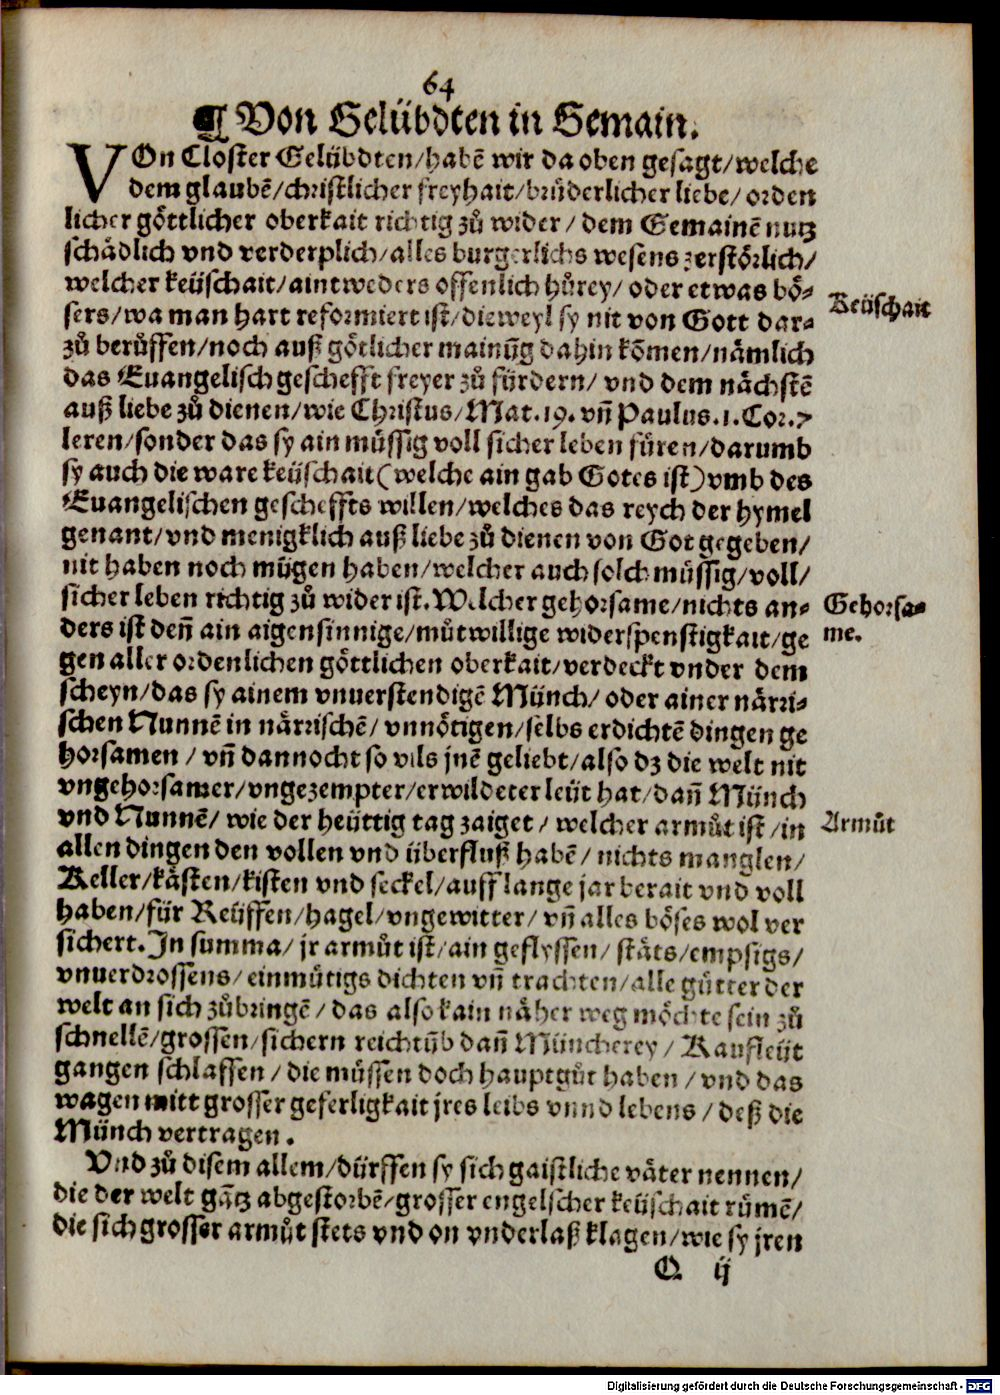 64
¶ Von Gelübdten in Gemain.
VOn Closter Gelübdten/habē wir da oben gesagt/welche
dem glaubē/christlicher freyhait/brüderlicher liebe/orden
licher göttlicher oberkait richtig zů wider/dem Gemainē nutz
schådlich vnd verderplich/alles burgerlichs wesens zerstörlich/
welcher keüschait/aintweders offenlich hůrey/oder etwas bö-
sers/wa man hart reformiert ist/dieweyl sy nit von Gott dar-
zů berůffen/noch auß götlicher mainūg dahin kōmen/nåmlich
das Euangelisch geschefft freyer zů fürdern/vnd dem nåchstē
auß liebe zů dienen/wie Christus/Mat.19.vñ Paulus.1.Cor.7
leren/sonder das sy ain müssig voll sicher leben füren/darumb
sy auch die ware keüschait(welche ain gab Gotes ist)vmb des
Euangelischen gescheffts willen/welches das reych der hymel
genant/vnd menigklich auß liebe zů dienen von Got gegeben/
nit haben noch mügen haben/welcher auch solch müssig/voll/
sicher leben richtig zů wider ist. Welcher gehorsame/nichts an-
ders ist deñ ain aigensinnige/můtwillige widerspenstigkait/ge
gen aller ordenlichen göttlichen oberkait/verdeckt vnder dem
scheyn/das sy ainem vnuerstendigē Münch/oder ainer nårri-
schen Nunnē in nårrischē/vnnötigen/selbs erdichtē dingen ge
horsamen/vñ dannocht so vils jnē geliebt/also dz die welt nit
vngehorsamer/vngezempter/erwildeter leüt hat/dañ Münch
vnd Nunnē/wie der heüttig tag zaiget/welcher armůt ist/in
allen dingen den vollen vnd überfluß habē/nichts manglen/
Keller/kåsten/kisten vnd seckel/auff lange jar berait vnd voll
haben/für Reüffen/hagel/vngewitter/vñ alles böses wol ver
sichert. In summa/jr armůt ist/ain geflyssen/ståts/empsigs/
vnuerdrossens/einmütigs dichten vñ trachten/alle gütter der
welt an sich zůbringē/das also kain nåher weg möchte sein zů
schnellē/grossen/sichern reichtūb dañ Müncherey/Kaufleüt
gangen schlaffen/die müssen doch hauptgůt haben/vnd das
wagen mitt grosser geferligkait jres leibs vnnd lebens/deß die
Münch vertragen.
Vnd zů disem allem/dürffen sy sich gaistliche våter nennen/
die der welt gātz abgestorbē/grosser engelscher keüschait rümē/
die sich grosser armůt stets vnd on vnderlaß klagen/wie sy jren
Q ij
Keüschait
Gehorsa-
me.
Armůt
Digitalisierung gefördert durch die Deutsche Forschungsgemeinschaft - DFG